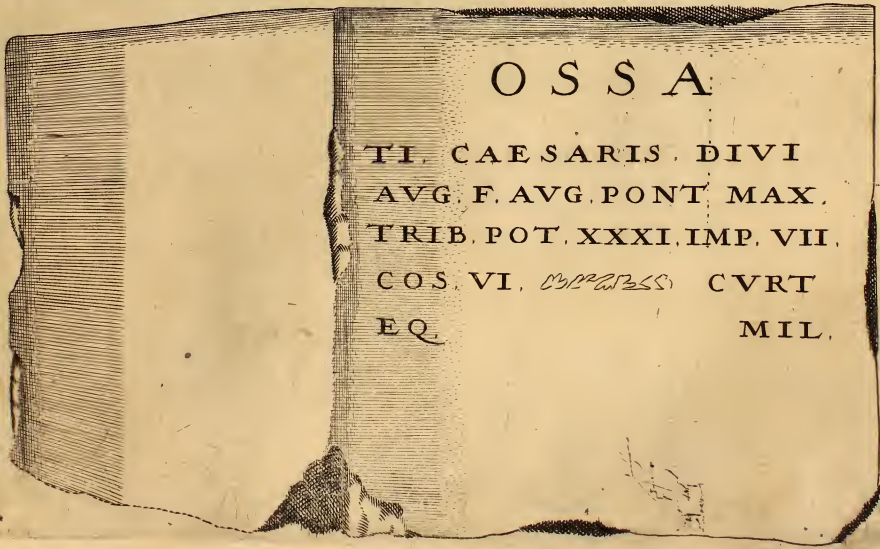 OSSA
TI. CAESARIS. DIVI
AVG. F. AVG. PONT MAX.
TRIB. POT. XXXI. IMP. VII.
COS. VI. CVRT
EQ. MIL.